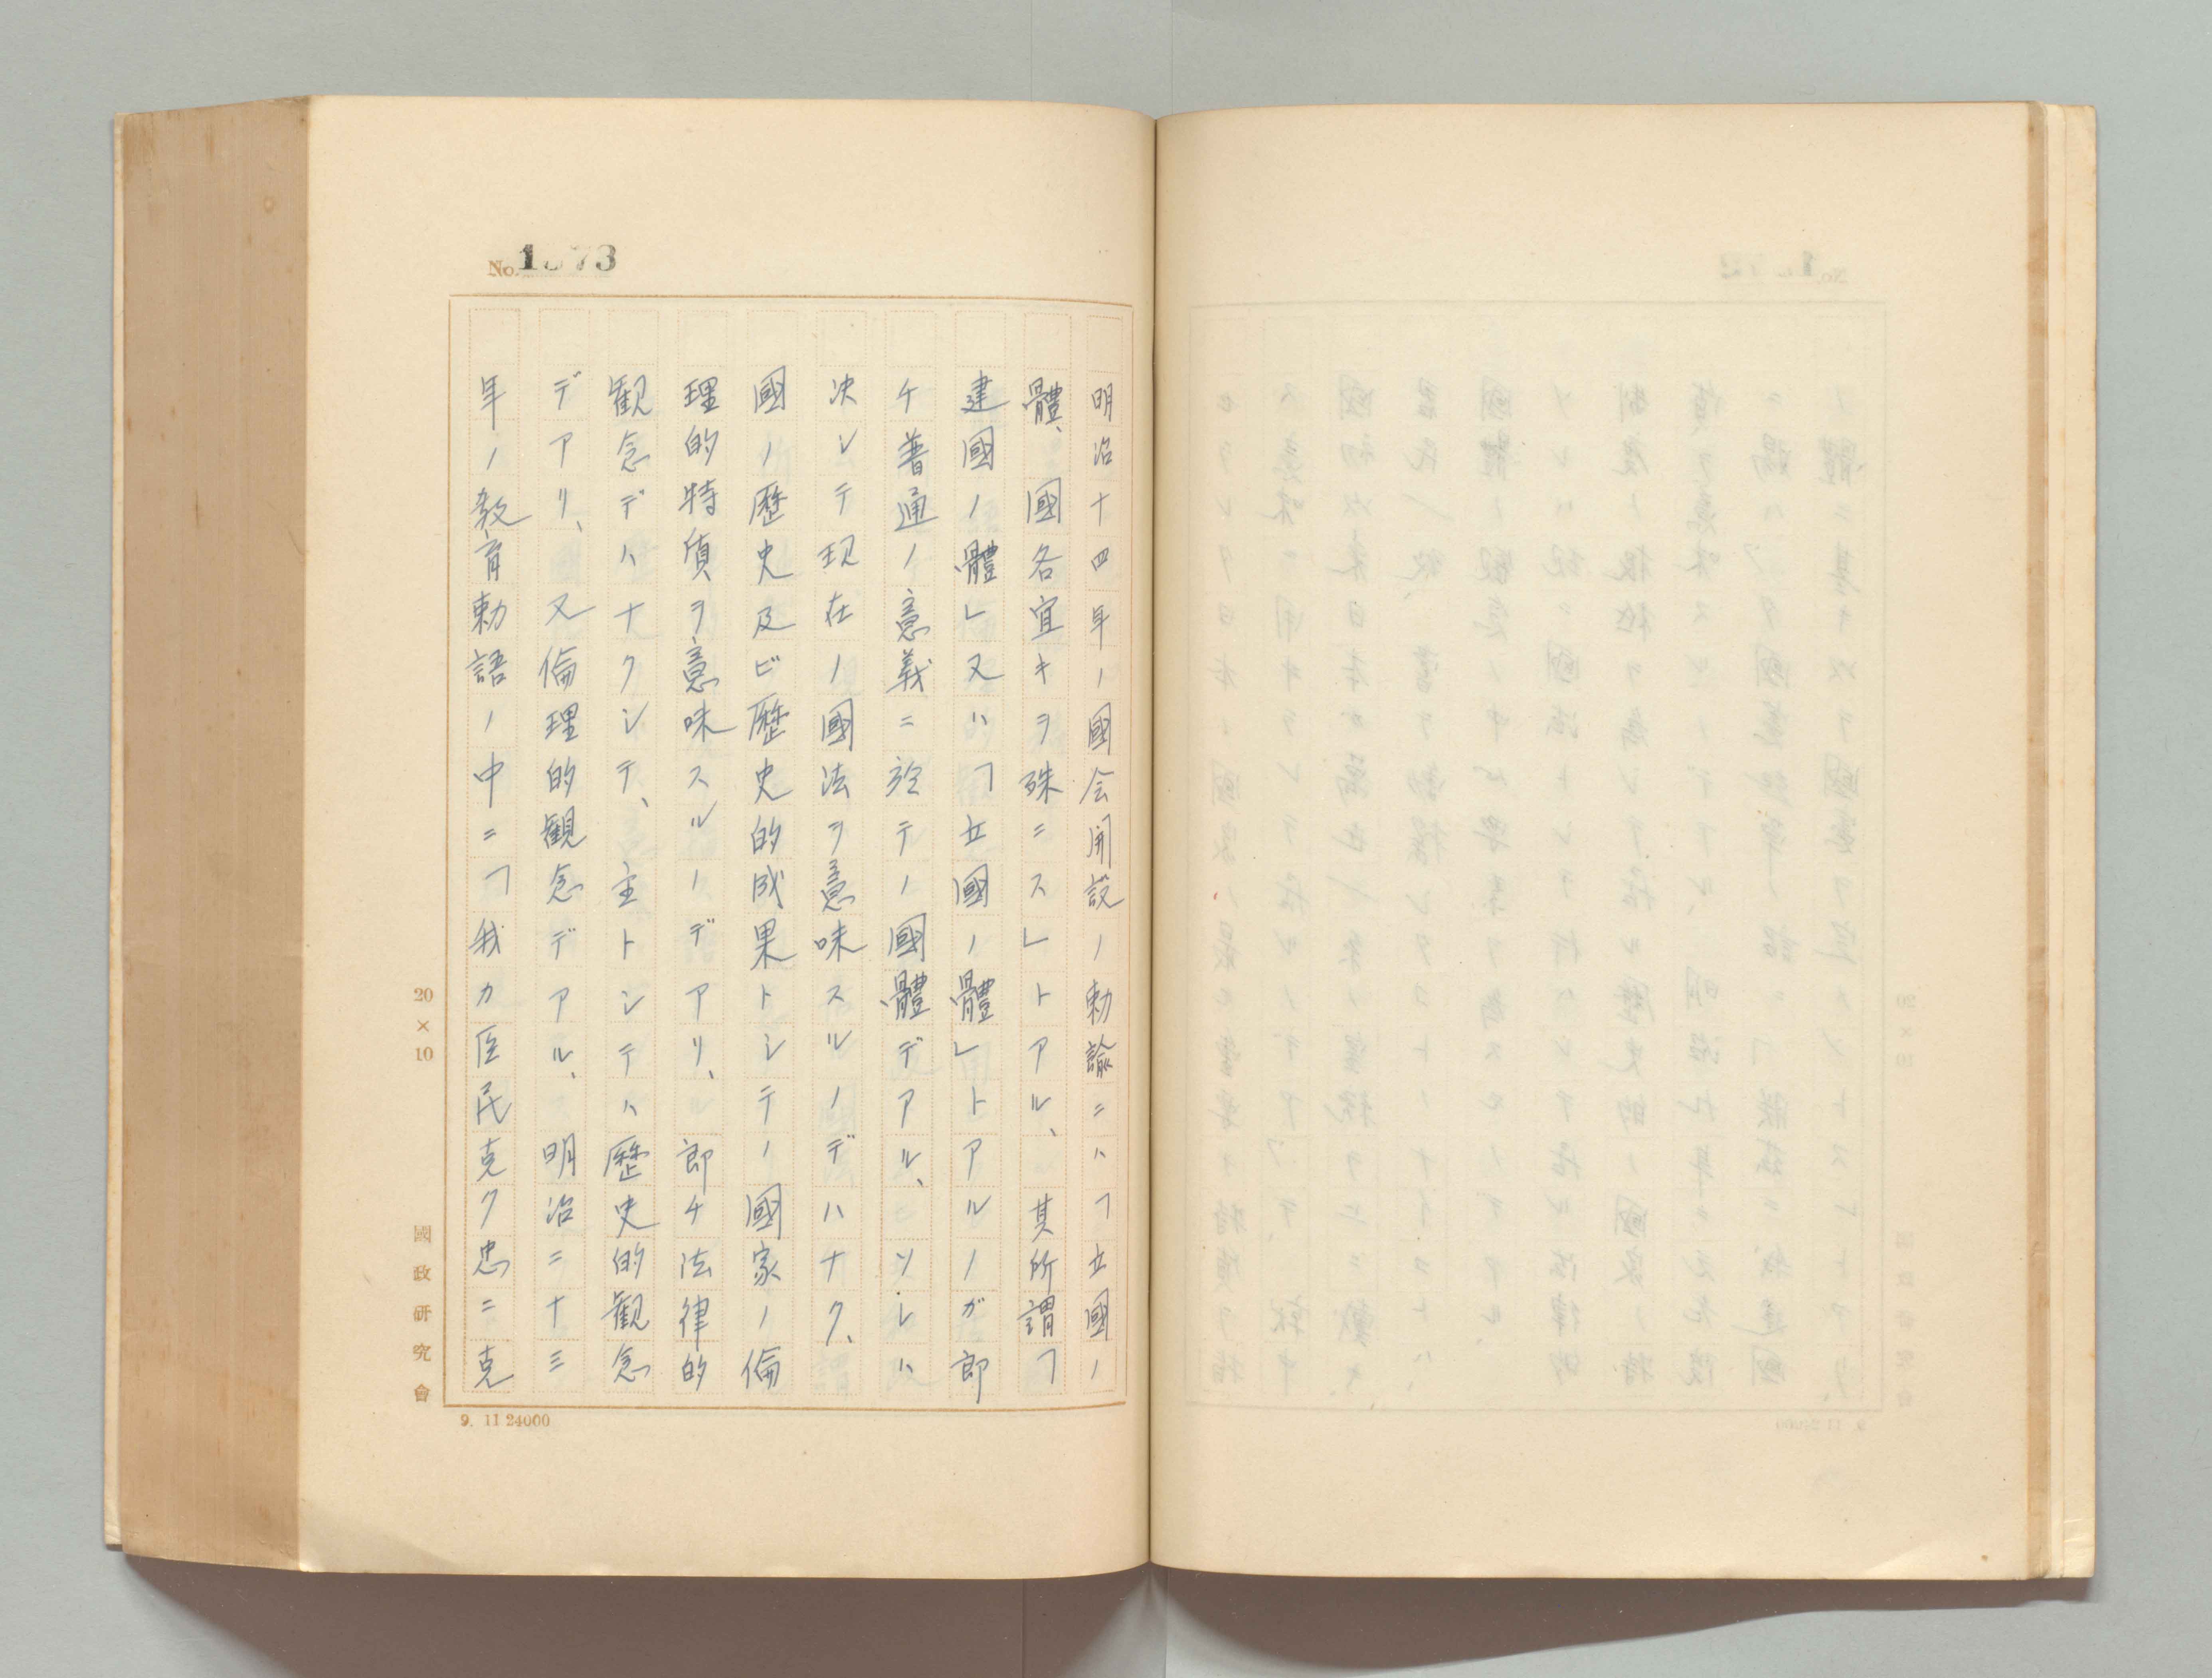 No. 1373
明治十四年ノ國会開設ノ勅諭ニハ「立國ノ
體、國各宜キヲ殊ニス」トアル、其所謂「
建國ノ體」又ハ「立國ノ體」トアルノガ即
チ普通ノ意義ニ於テノ國體デアル、ソレハ
決シテ現在ノ國法ヲ意味スルノデハナク、
國ノ歴史及ビ歴史的成果トシテノ國家ノ倫
理的特質ヲ意味スルノデアリ、即チ法律的
観念デハナクシテ、主トシテハ歴史的観念
デアリ、又倫理的観念デアル、明治二十三
年ノ教育勅語ノ中ニ「我カ臣民克ク忠ニ克
20×10
國政研究會
9. 11 24000